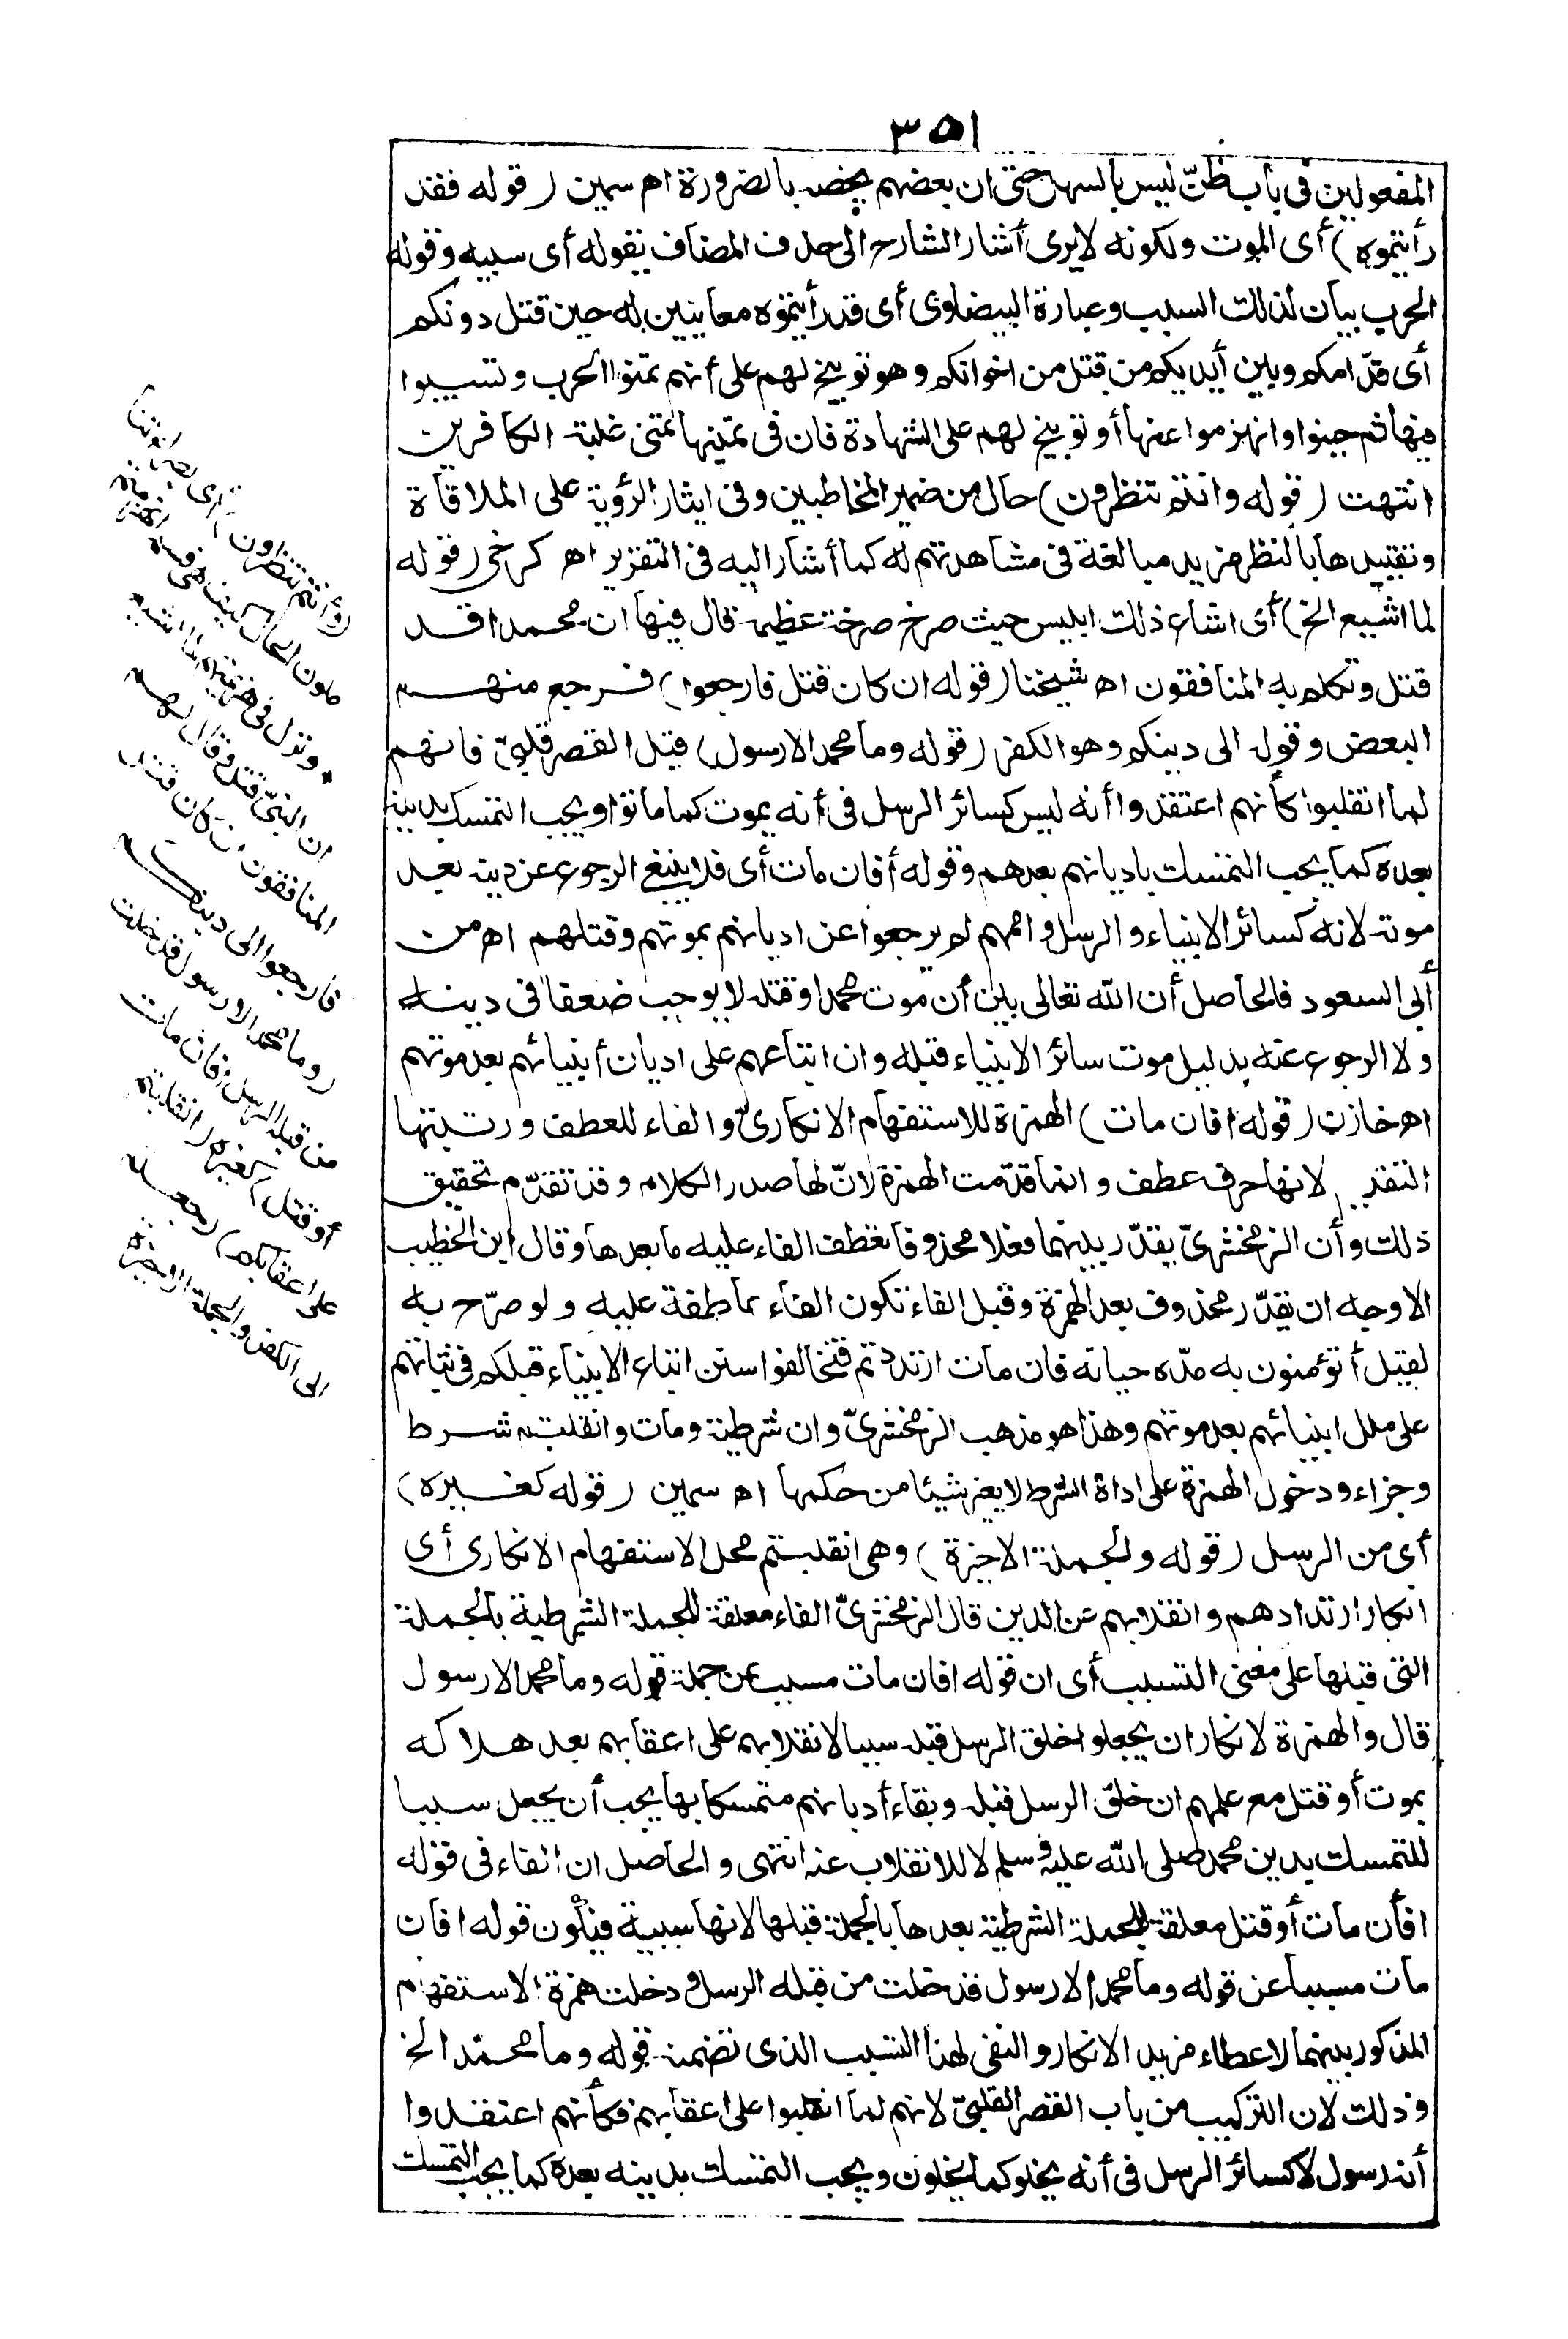 ٣٥١
المفعولين فى باب ظنّ ليس بالسهل حتى ان بعضهم يخصه بالضرورة اه سمين (قوله فقد
رأيتموه) أى الموت ولكونه لايرى أشار الشارح الى حذف المضاف بقوله أى سببه وقوله
الحرب بيان لذلك السبب وعبارة البيضاوى أى قد رأيتموه معاينين له حين قتل دونكم
أى قدّامكم وبين أيديكم من قتل من اخوانكم وهو توبيخ لهم على أنهم تمنوا الحرب وتسببوا
فيها ثم جبنوا وانهزموا عنها أو توبيخ لهم على الشهادة فان فى تمنيها تمنى غلبة الكافرين
انتهت (قوله وانتم تنظرون) حال من ضمير المخاطبين وفى ايثار الرؤية على الملاقاة
وتقييدها بالنظر مزيد مبالغة فى مشاهدتهم له كما أشار اليه فى التقرير اه كرخى (قوله
لما اشيع الخ) أى اشاع ذلك ابليس حيث صرخ صرخة عظيمة قال فيها ان محمدا قد
قتل وتكلم به المنافقون اه شيخنا (قوله ان كان قتل فارجعوا) فرجع منهم
البعض وقوله الى دينكم وهو الكفر (قوله وما محمد الا رسول) قيل القصر قلبىّ فانهم
لما انقلبوا كأنهم اعتقدوا أنه ليس كسائر الرسل فى أنه يموت كما ماتوا ويجب التمسك بدينه
بعده كما يجب التمسك باديانهم بعدهم وقوله أفان مات أى فلا ينبغى الرجوع عن دينه بعد
موته لانه كسائر الانبياء والرسل وأممهم لم يرجعوا عن اديانهم بموتهم وقتلهم اه من
أبى السعود فالحاصل أن الله تعالى بين أن موت محمد أو قتله لا يوجب ضعفا فى دينه
ولا الرجوع عنه بدليل موت سائر الانبياء قبله وان اتباعهم على اديان أنبيائهم بعد موتهم
اه خازن (قوله افان مات) الهمزة للاستفهام الانكارىّ والفاء للعطف ورتبتها
التقدير لانها حرف عطف وانما قدّمت الهمزة لانّ لها صدر الكلام وقد تقدّم تحقيق
ذلك وأن الزمخشرىّ يقدّر بينهما فعلا محذوفا تعطف الفاء عليه ما بعدها وقال ابن الخطيب
الاوجه ان يقدّر محذوف بعد الهمزة وقبل الفاء تكون الفاء عاطفة عليه ولو صرّح به
لقيل أتؤمنون به مدّه حياته فان مات ارتددتم فتخالفوا سنن اتباع الانبياء قبلكم فى ثباتهم
على ملل انبيائهم بعد موتهم وهذا هو مذهب الزمخشرىّ وان شرطية ومات وانقلبتم شرط
وجزاء ودخول الهمزة على اداة الشرط لا يغير شيئا من حكمها اه سمين (قوله كغيره)
أى من الرسل (قوله والجملة الاخيرة) وهى انقلبتم محل الاستفهام الانكارى أى
انكار ارتدادهم وانقلابهم عن الدين قال الزمخشرىّ الفاء معلقة للجملة الشرطية بالجملة
التى قبلها على معنى التسبب أى ان قوله افان مات مسبب عن جملة قوله وما محمد الا رسول
قال والهمزة لانكار ان يجعلوا خلق الرسل قبله سببا لانقلابهم على اعقابهم بعد هلاكه
بموت أو قتل مع علمهم ان خلوّ الرسل قبله وبقاء أديانهم متمسكا بها يجب أن يجعل سببا
للتمسك بدين محمد صلى الله عليه وسلم لا للانقلاب عنه انتهى والحاصل ان الفاء فى قوله
افأن مات أو قتل معلقة للجملة الشرطية بعدها بالجملة قبلها لانها سببية فيكون قوله افان
مات مسببا عن قوله وما محمد الا رسول قد خلت من قبله الرسل ودخلت همزة الاستفهام
المذكور بينهما لاعطاء مزيد الانكار والنفى لهذا التسبب الذى تضمنه قوله وما محمد الخ
وذلك لان التركيب من باب القصر القلبىّ لانهم لما انقلبوا على اعقابهم فكأنهم اعتقدوا
أنه رسول لا كسائر الرسل فى أنه يخلو كما يخلون ويجب التمسك بدينه بعده كما يجب التمسك
(وأنتم تنظرون) أى بصراء تتأ
ملون الحال كيف هى فلم انهزمتم
ونزل فى هزيمتهم لما اشيع
ان النبىّ قتل وقال لهم
المنافقون ان كان قتل
فارجعوا الى دينكم
(وما محمد الا رسول قد خلت
من قبله الرسل أفان مات
أو قتل) كغيره (انقلبتم
على اعقابكم) رجعتم
الى الكفر والجملة الاخيرة